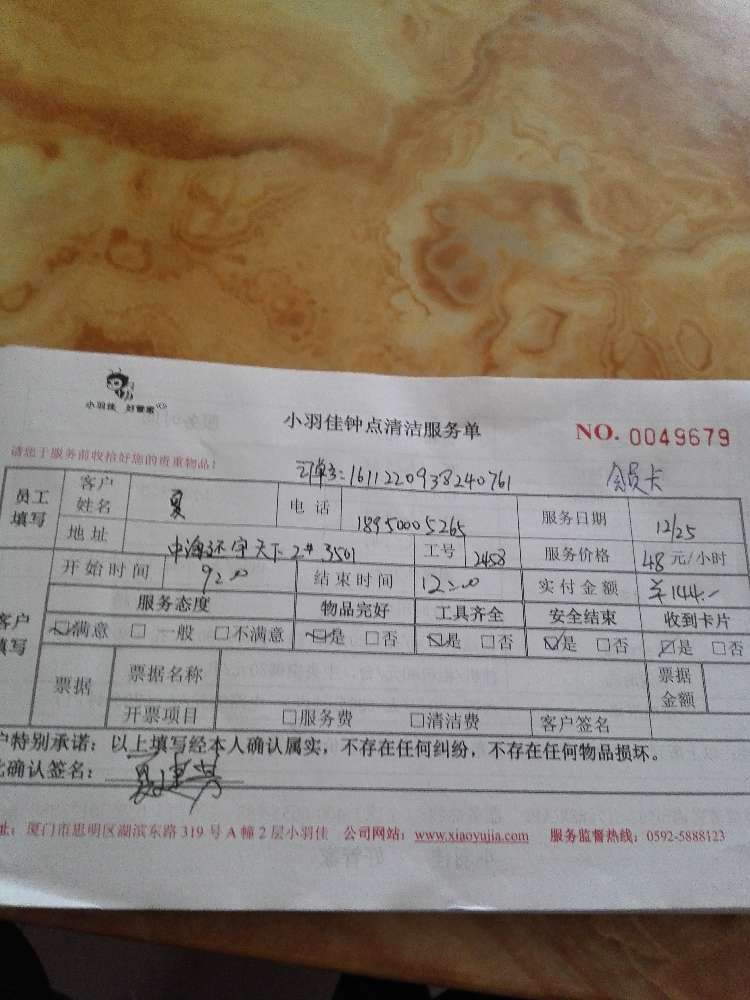 小羽佳 好管家
小羽佳钟点清洁服务单
NO. 0049679
请您于服务前收拾好您的贵重物品!
订单号:1611220938240761 会员卡
员工填写 客户姓名 夏 电话 18950005265 服务日期 12/25
地址 中海环宇天下2# 3501 工号 2458 服务价格 48元/小时
开始时间 9:00 结束时间 12:00 实付金额 ¥144.-
客户填写 服务态度 物品完好 工具齐全 安全结束 收到卡片
☑满意 □一般 □不满意 ☑是 □否 ☑是 □否 ☑是 □否 ☑是 □否
票据 票据名称 票据金额
开票项目 □服务费 □清洁费 客户签名
户特别承诺:以上填写经本人确认属实,不存在任何纠纷,不存在任何物品损坏。
此确认签名:
址:厦门市思明区湖滨东路 319 号 A 幢 2 层小羽佳 公司网站:www.xiaoyujia.com 服务监督热线:0592-5888123